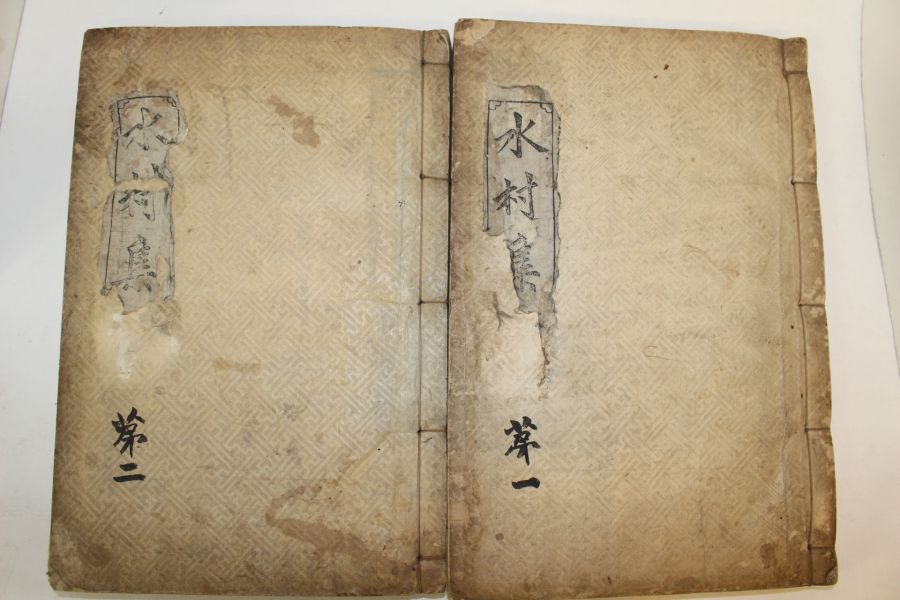 水村集
第一
水村集
第二